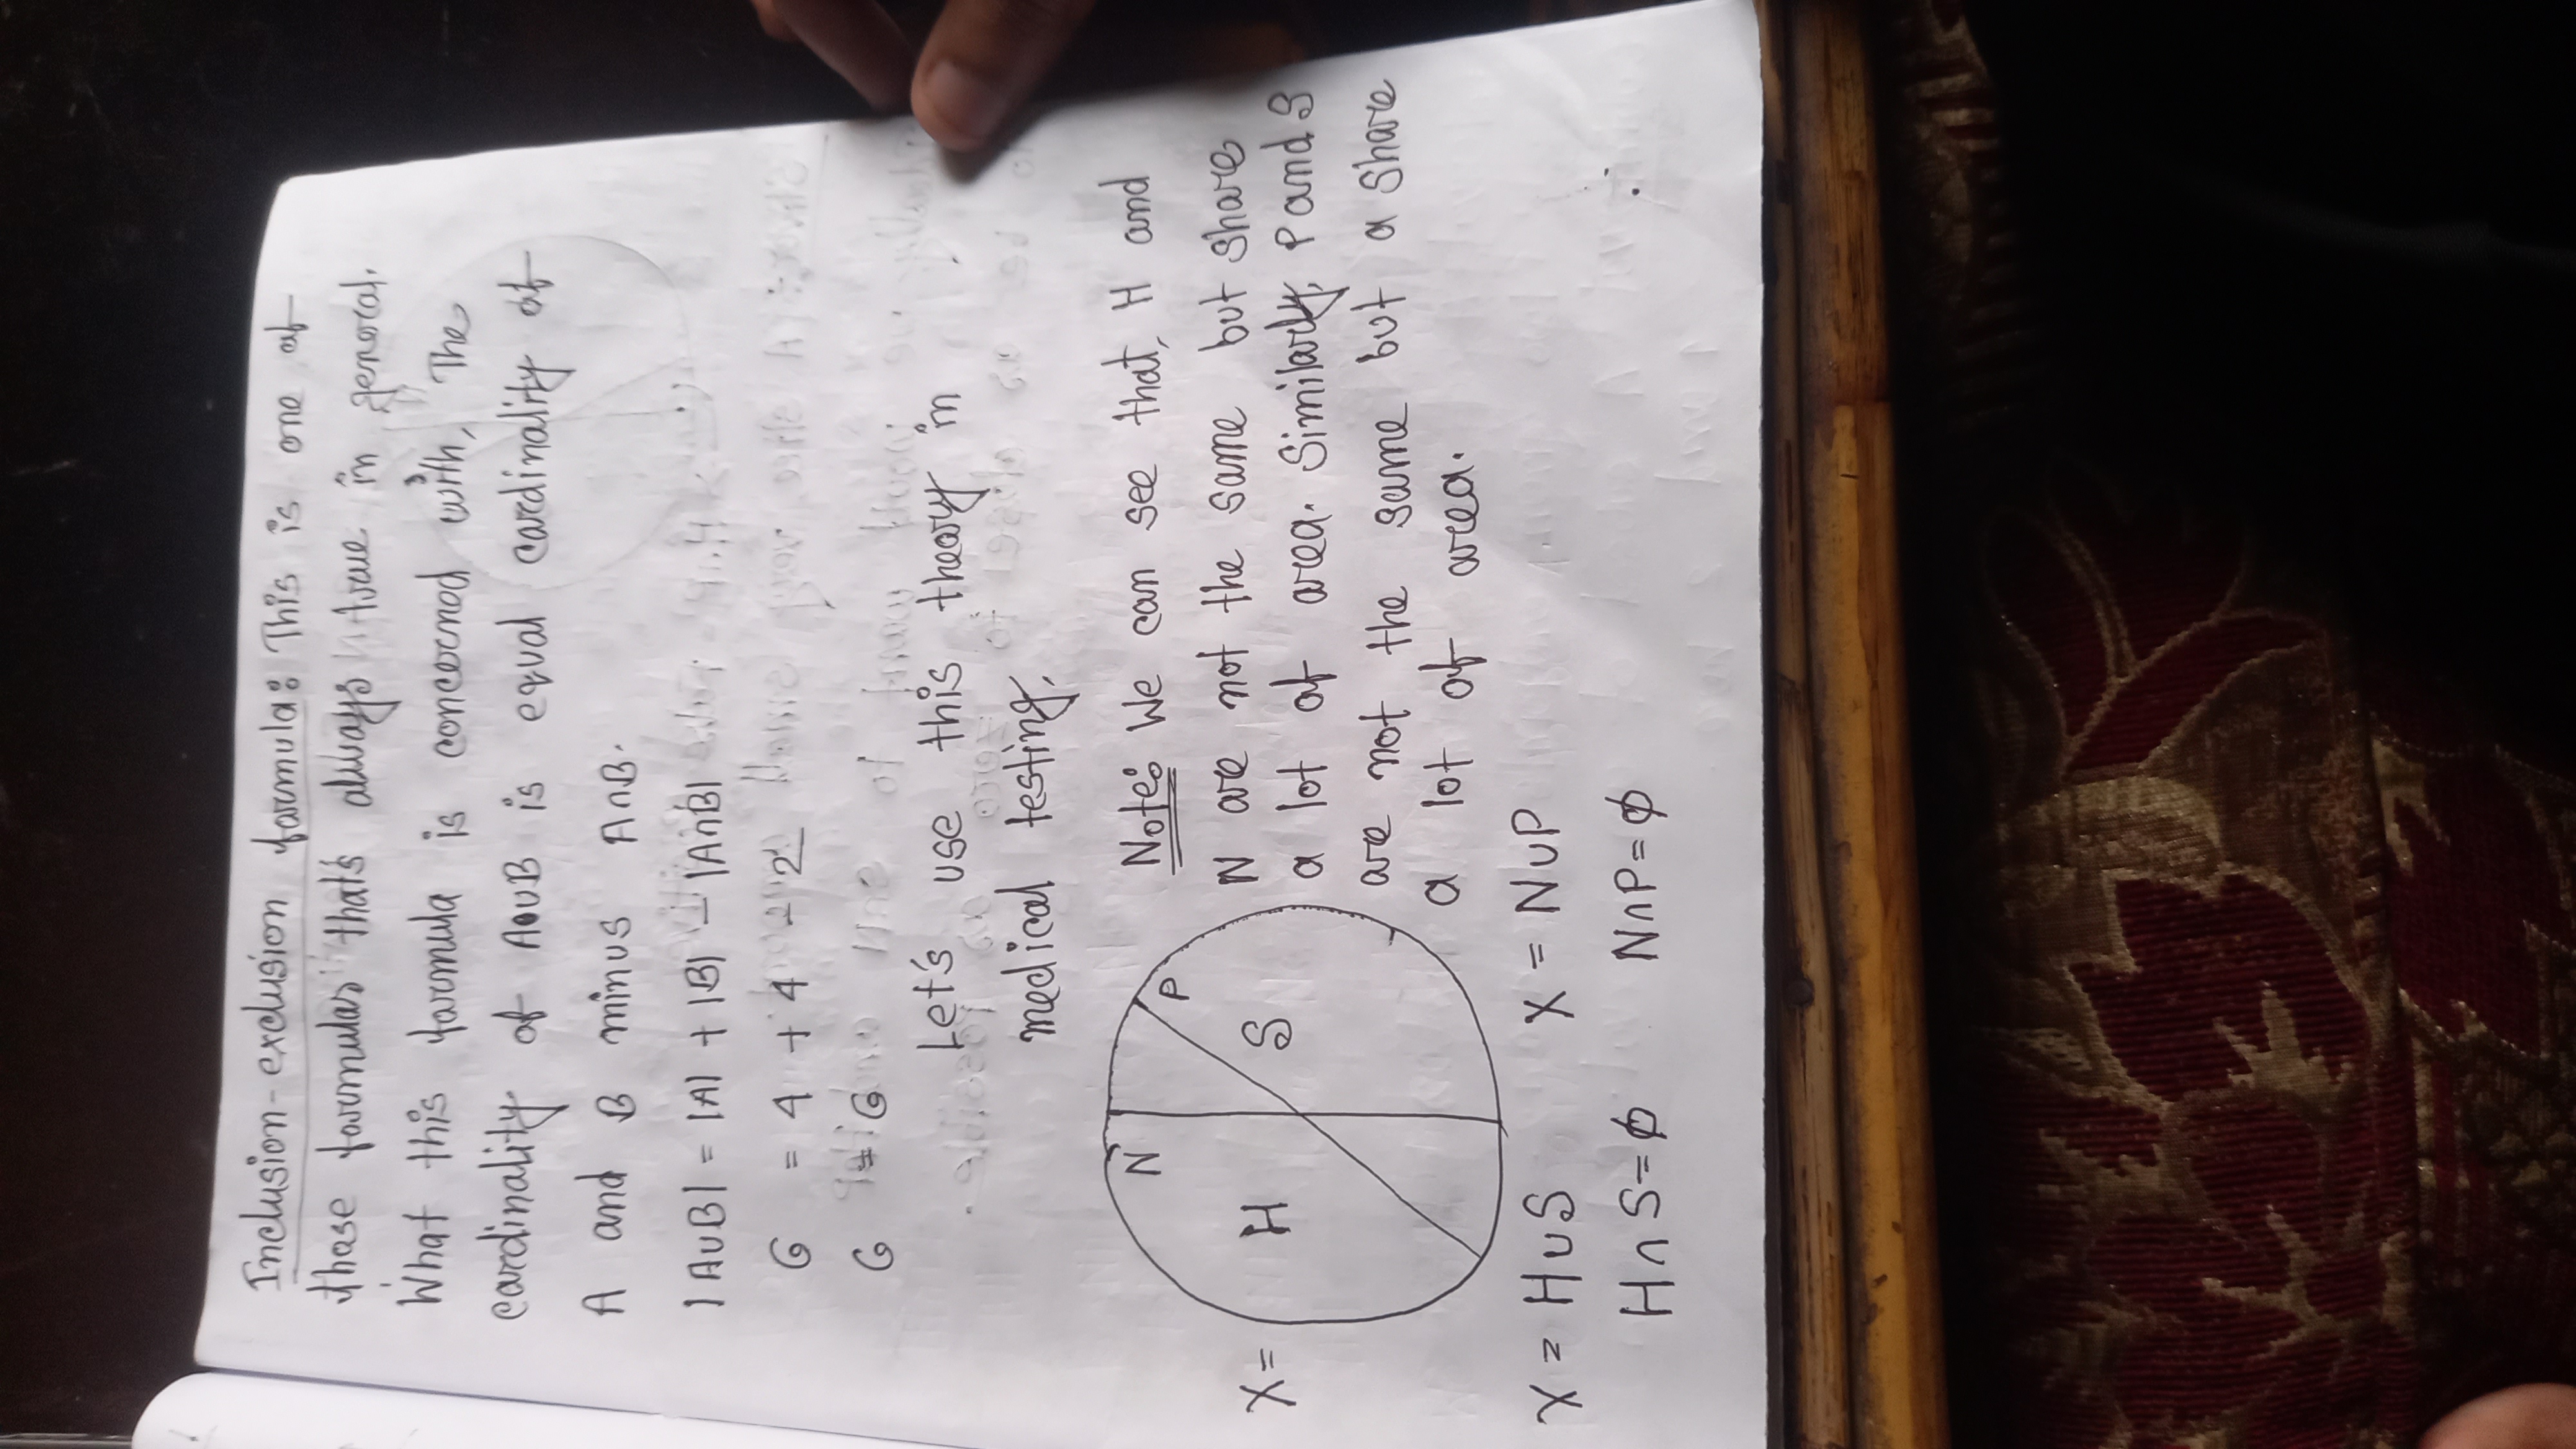 Inclusion-exclusion formula: This is one of
those formulas that's always true in general.
What this formula is concerned with, The
cardinality of A∪B is equal cardinality of
A and B minus A∩B.
|A∪B| = |A| + |B| - |A∩B|
6 = 4 + 4 - 2
6 = 6
Let's use this theory in
medical testing.
N
P
X =
H
S
Note: We can see that, H and
N are not the same but share
a lot of area. Similarly, P and S
are not the same but a share
a lot of area.
X = H∪S X = N∪P
H∩S=∅ N∩P=∅